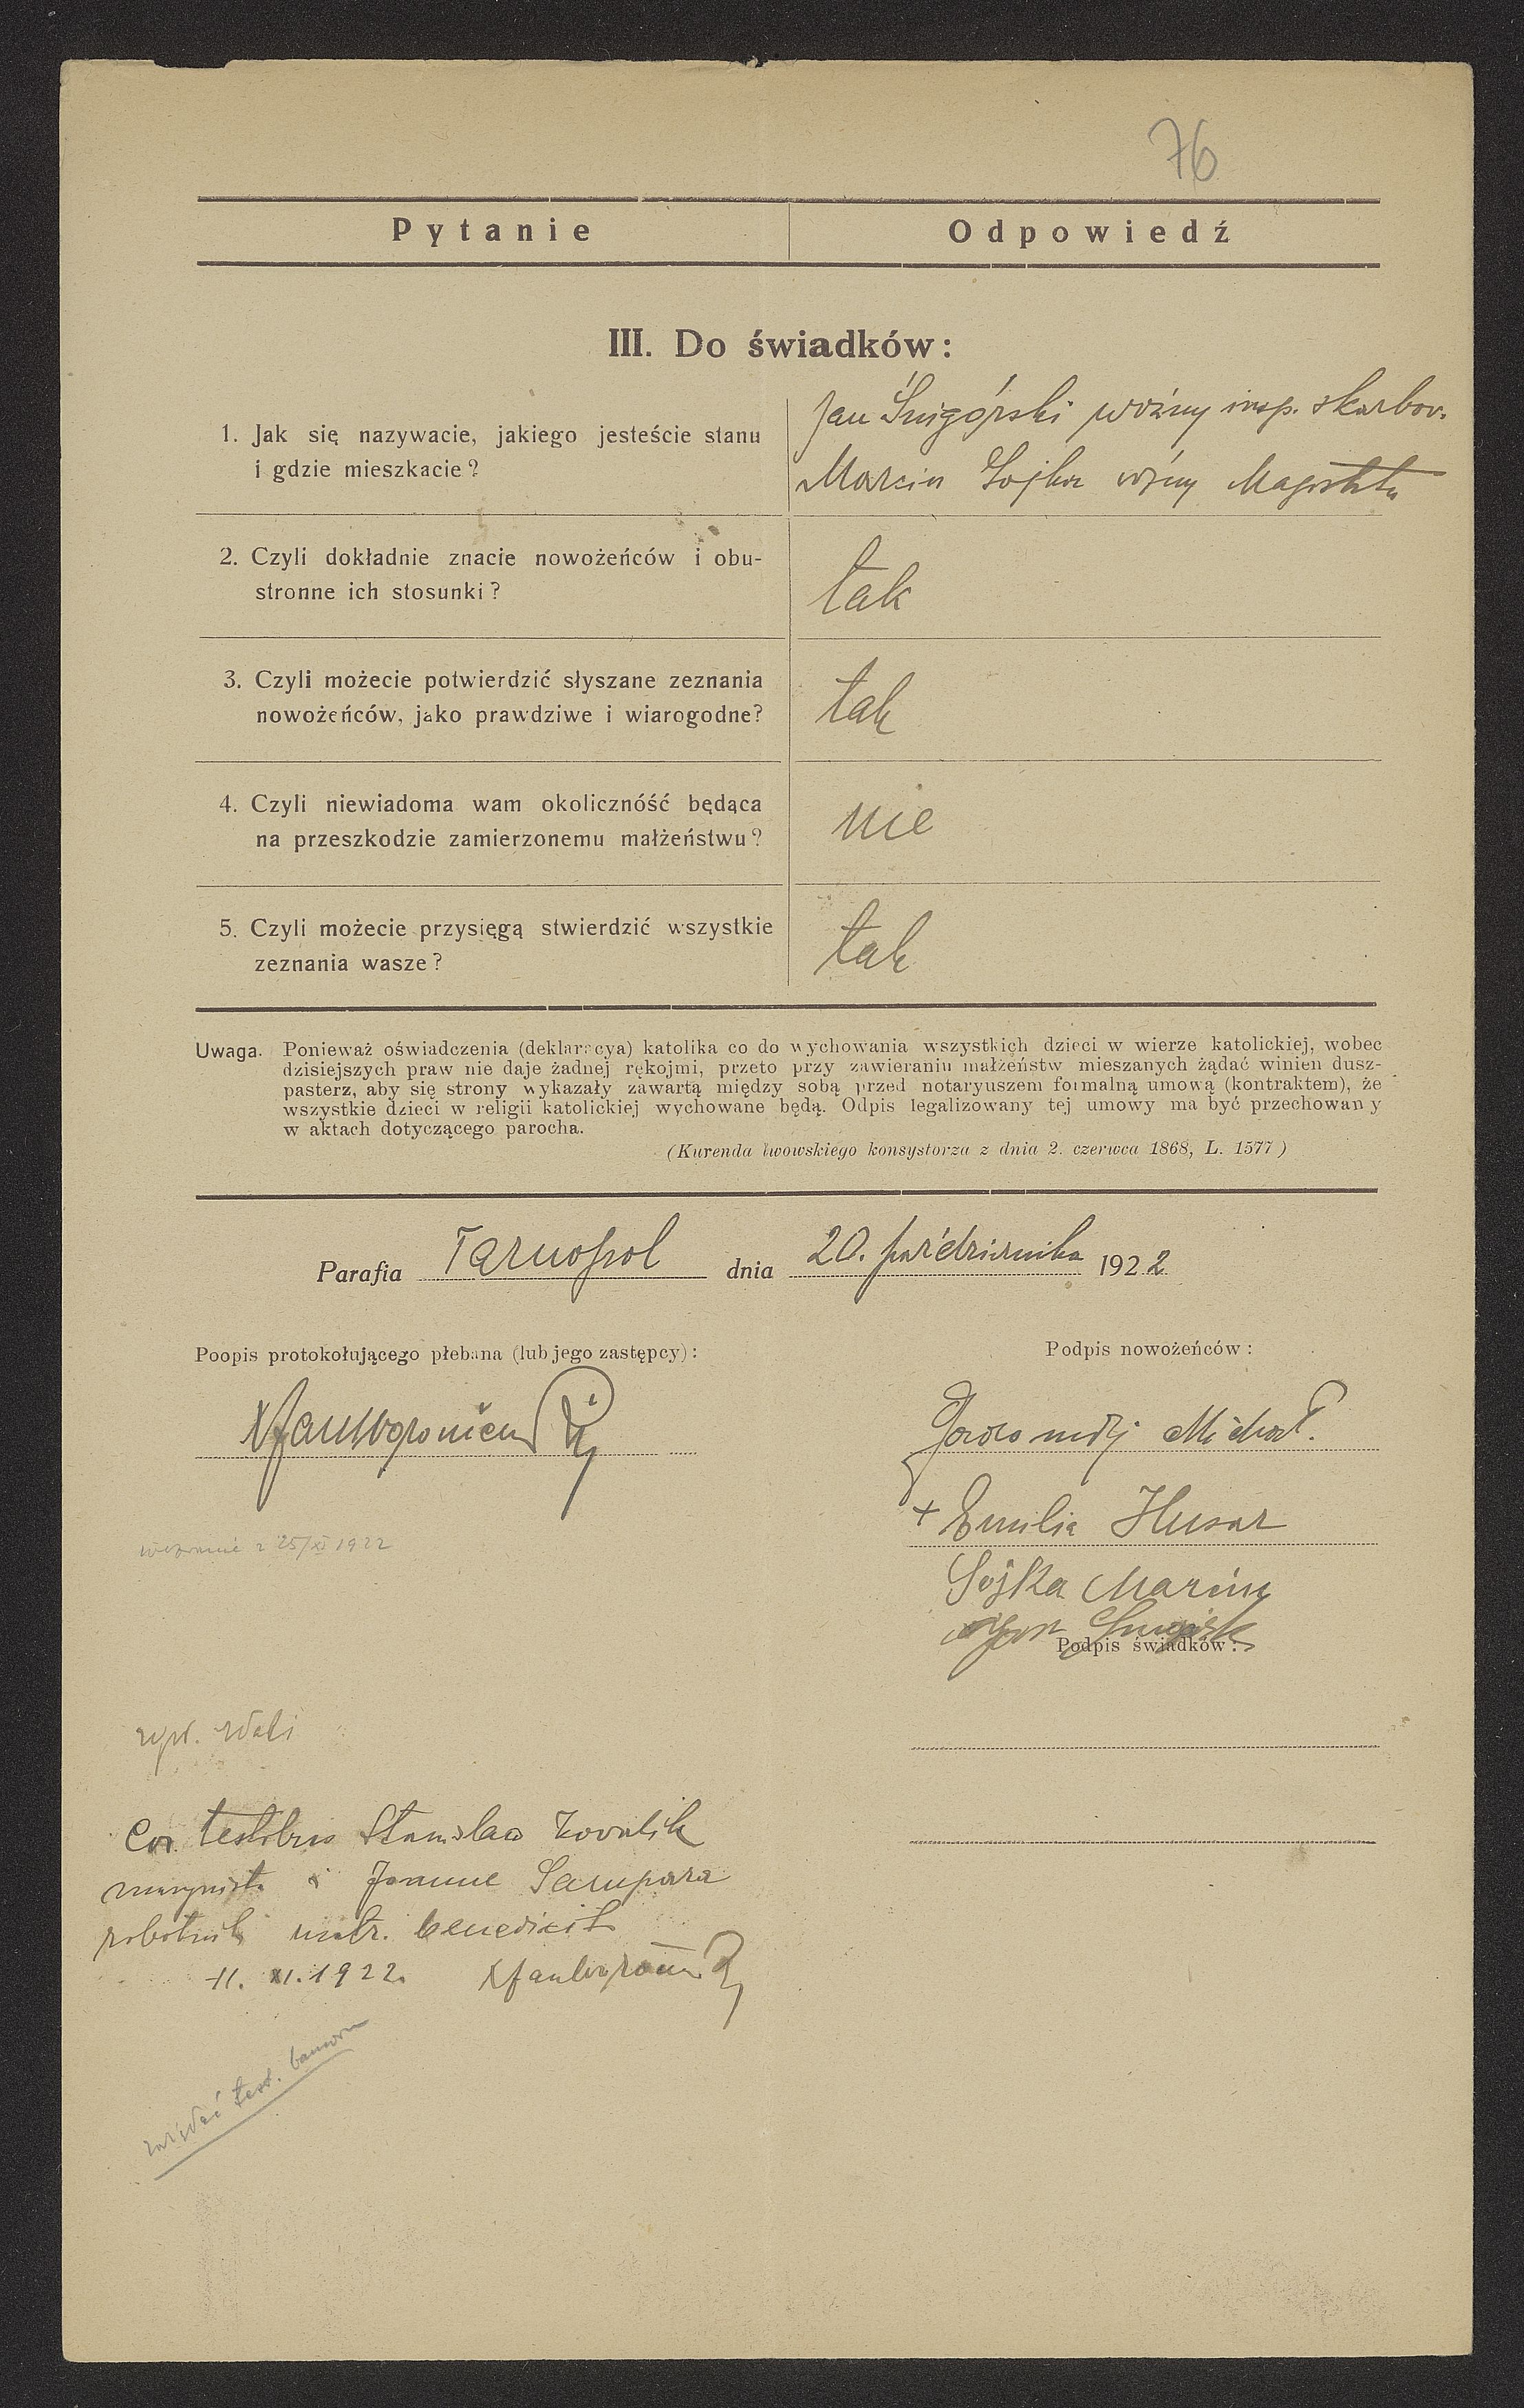 76
Pytanie
Odpowiedź
III. Do świadków:
1. Jak się nazywacie, jakiego jesteście stanu
i gdzie mieszkacie?
Jan Śnigórski woźny insp. skarbow.
Marcin Sojka woźny Magistratu
2. Czyli dokładnie znacie nowożeńców i obu-
stronne ich stosunki?
tak
3. Czyli możecie potwierdzić słyszane zeznania
nowożeńców, jako prawdziwe i wiarogodne?
tak
4. Czyli niewiadoma wam okolicznóść będąca
na przeszkodzie zamierzonemu małżeństwu?
nie
5. Czyli możecie przysięgą stwierdzić wszystkie
zeznania wasze?
tak
Uwaga. Ponieważ oświadczenia (deklaracya) katolika co do wychowania wszystkich dzieci w wierze katolickiej, wobec
dzisiejszych praw nie daje żadnej rękojmi, przeto przy zawieraniu małżeństw mieszanych żądać winien dusz-
pasterz, aby się strony wykazały zawartą między sobą przed notaryuszem formalną umową (kontraktem), że
wszystkie dzieci w religii katolickiej wychowane będą. Odpis legalizowany tej umowy ma być przechowany
w aktach dotyczącego parocha.
(Kurenda lwowskiego konsystorza z dnia 2. czerwca 1868, L. 1577)
Parafia Tarnopol dnia 20. października 1922
Poopis protokołującego plebana (lub jego zastępcy):
Podpis nowożeńców:
Michał.
+ Emilia Husar
Sojka Marcin
Jan
Podpis świadków:
25/XI 1922
zapł.
Cor. testibus Stanislao Kowalik
maszynista & Joanne
robotnik matr. benedixit
11. XI. 1922.
test.